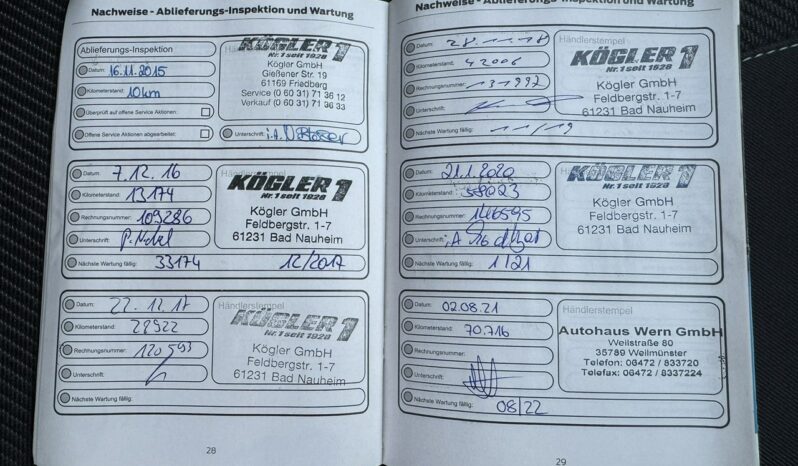 Nachweise - Ablieferungs-Inspektion und Wartung
Ablieferungs-Inspektion
Datum: 16.11.2015
Kilometerstand: 10km
Überprüft auf offene Service Aktionen:
Offene Service Aktionen abgearbeitet:
Unterschrift: i.A.
Händlerstempel
KÖGLER 1
Nr. 1 seit 1928
Kögler GmbH
Gießener Str. 19
61169 Friedberg
Service (0 60 31) 71 36 12
Verkauf (0 60 31) 71 36 33
Datum: 7.12.16
Kilometerstand: 13174
Rechnungsnummer: 109286
Unterschrift:
Nächste Wartung fällig: 33174 12/2017
Händlerstempel
KÖGLER 1
Nr. 1 seit 1928
Kögler GmbH
Feldbergstr. 1-7
61231 Bad Nauheim
Datum: 22.12.17
Kilometerstand: 28922
Rechnungsnummer: 120593
Unterschrift:
Nächste Wartung fällig:
Händlerstempel
KÖGLER 1
Nr. 1 seit 1928
Kögler GmbH
Feldbergstr. 1-7
61231 Bad Nauheim
28
Nachweise - Ablieferungs-Inspektion und Wartung
Datum: 28.11.18
Kilometerstand: 42006
Rechnungsnummer: 131997
Unterschrift:
Nächste Wartung fällig: 11/19
Händlerstempel
KÖGLER 1
Nr. 1 seit 1928
Kögler GmbH
Feldbergstr. 1-7
61231 Bad Nauheim
Datum: 21.1.2020
Kilometerstand: 58023
Rechnungsnummer: 146595
Unterschrift:
Nächste Wartung fällig: 1/21
KÖGLER 1
Nr. 1 seit 1928
Kögler GmbH
Feldbergstr. 1-7
61231 Bad Nauheim
Datum: 02.08.21
Kilometerstand: 70.716
Rechnungsnummer:
Unterschrift:
Nächste Wartung fällig: 08/22
Händlerstempel
Autohaus Wern GmbH
Weilstraße 80
35789 Weilmünster
Telefon: 06472 / 833720
Telefax: 06472 / 8337224
29